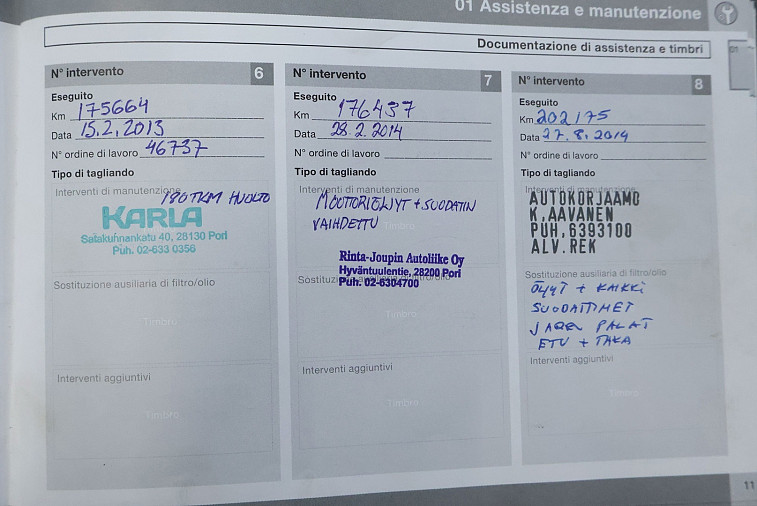 01 Assistenza e manutenzione
Documentazione di assistenza e timbri
01
N° intervento 6
Eseguito
Km 175664
Data 15.2.2013
N° ordine di lavoro 46737
Tipo di tagliando
Interventi di manutenzione
180TKM HUOLTO
KARLA
Satakunnankatu 40, 28130 Pori
Puh. 02-633 0356
Sostituzione ausiliaria di filtro/olio
Timbro
Interventi aggiuntivi
Timbro
N° intervento 7
Eseguito
Km 176437
Data 28.2.2014
N° ordine di lavoro
Tipo di tagliando
Interventi di manutenzione
MOOTTORIÖLJYT + SUODATIN
VAIHDETTU
Timbro
Rinta-Joupin Autoliike Oy
Hyväntuulentie, 28200 Pori
Puh. 02-6304700
Sostituzione ausiliaria di filtro/olio
Timbro
Interventi aggiuntivi
Timbro
N° intervento 8
Eseguito
Km 202175
Data 27.8.2014
N° ordine di lavoro
Tipo di tagliando
Interventi di manutenzione
AUTOKORJAAMO
K.AAVANEN
PUH.6393100
ALV.REK
Sostituzione ausiliaria di filtro/olio
ÖLJYT + KAIKKI
SUODATTIMET
JARRU PALAT
ETU + TAKA
Interventi aggiuntivi
Timbro
11